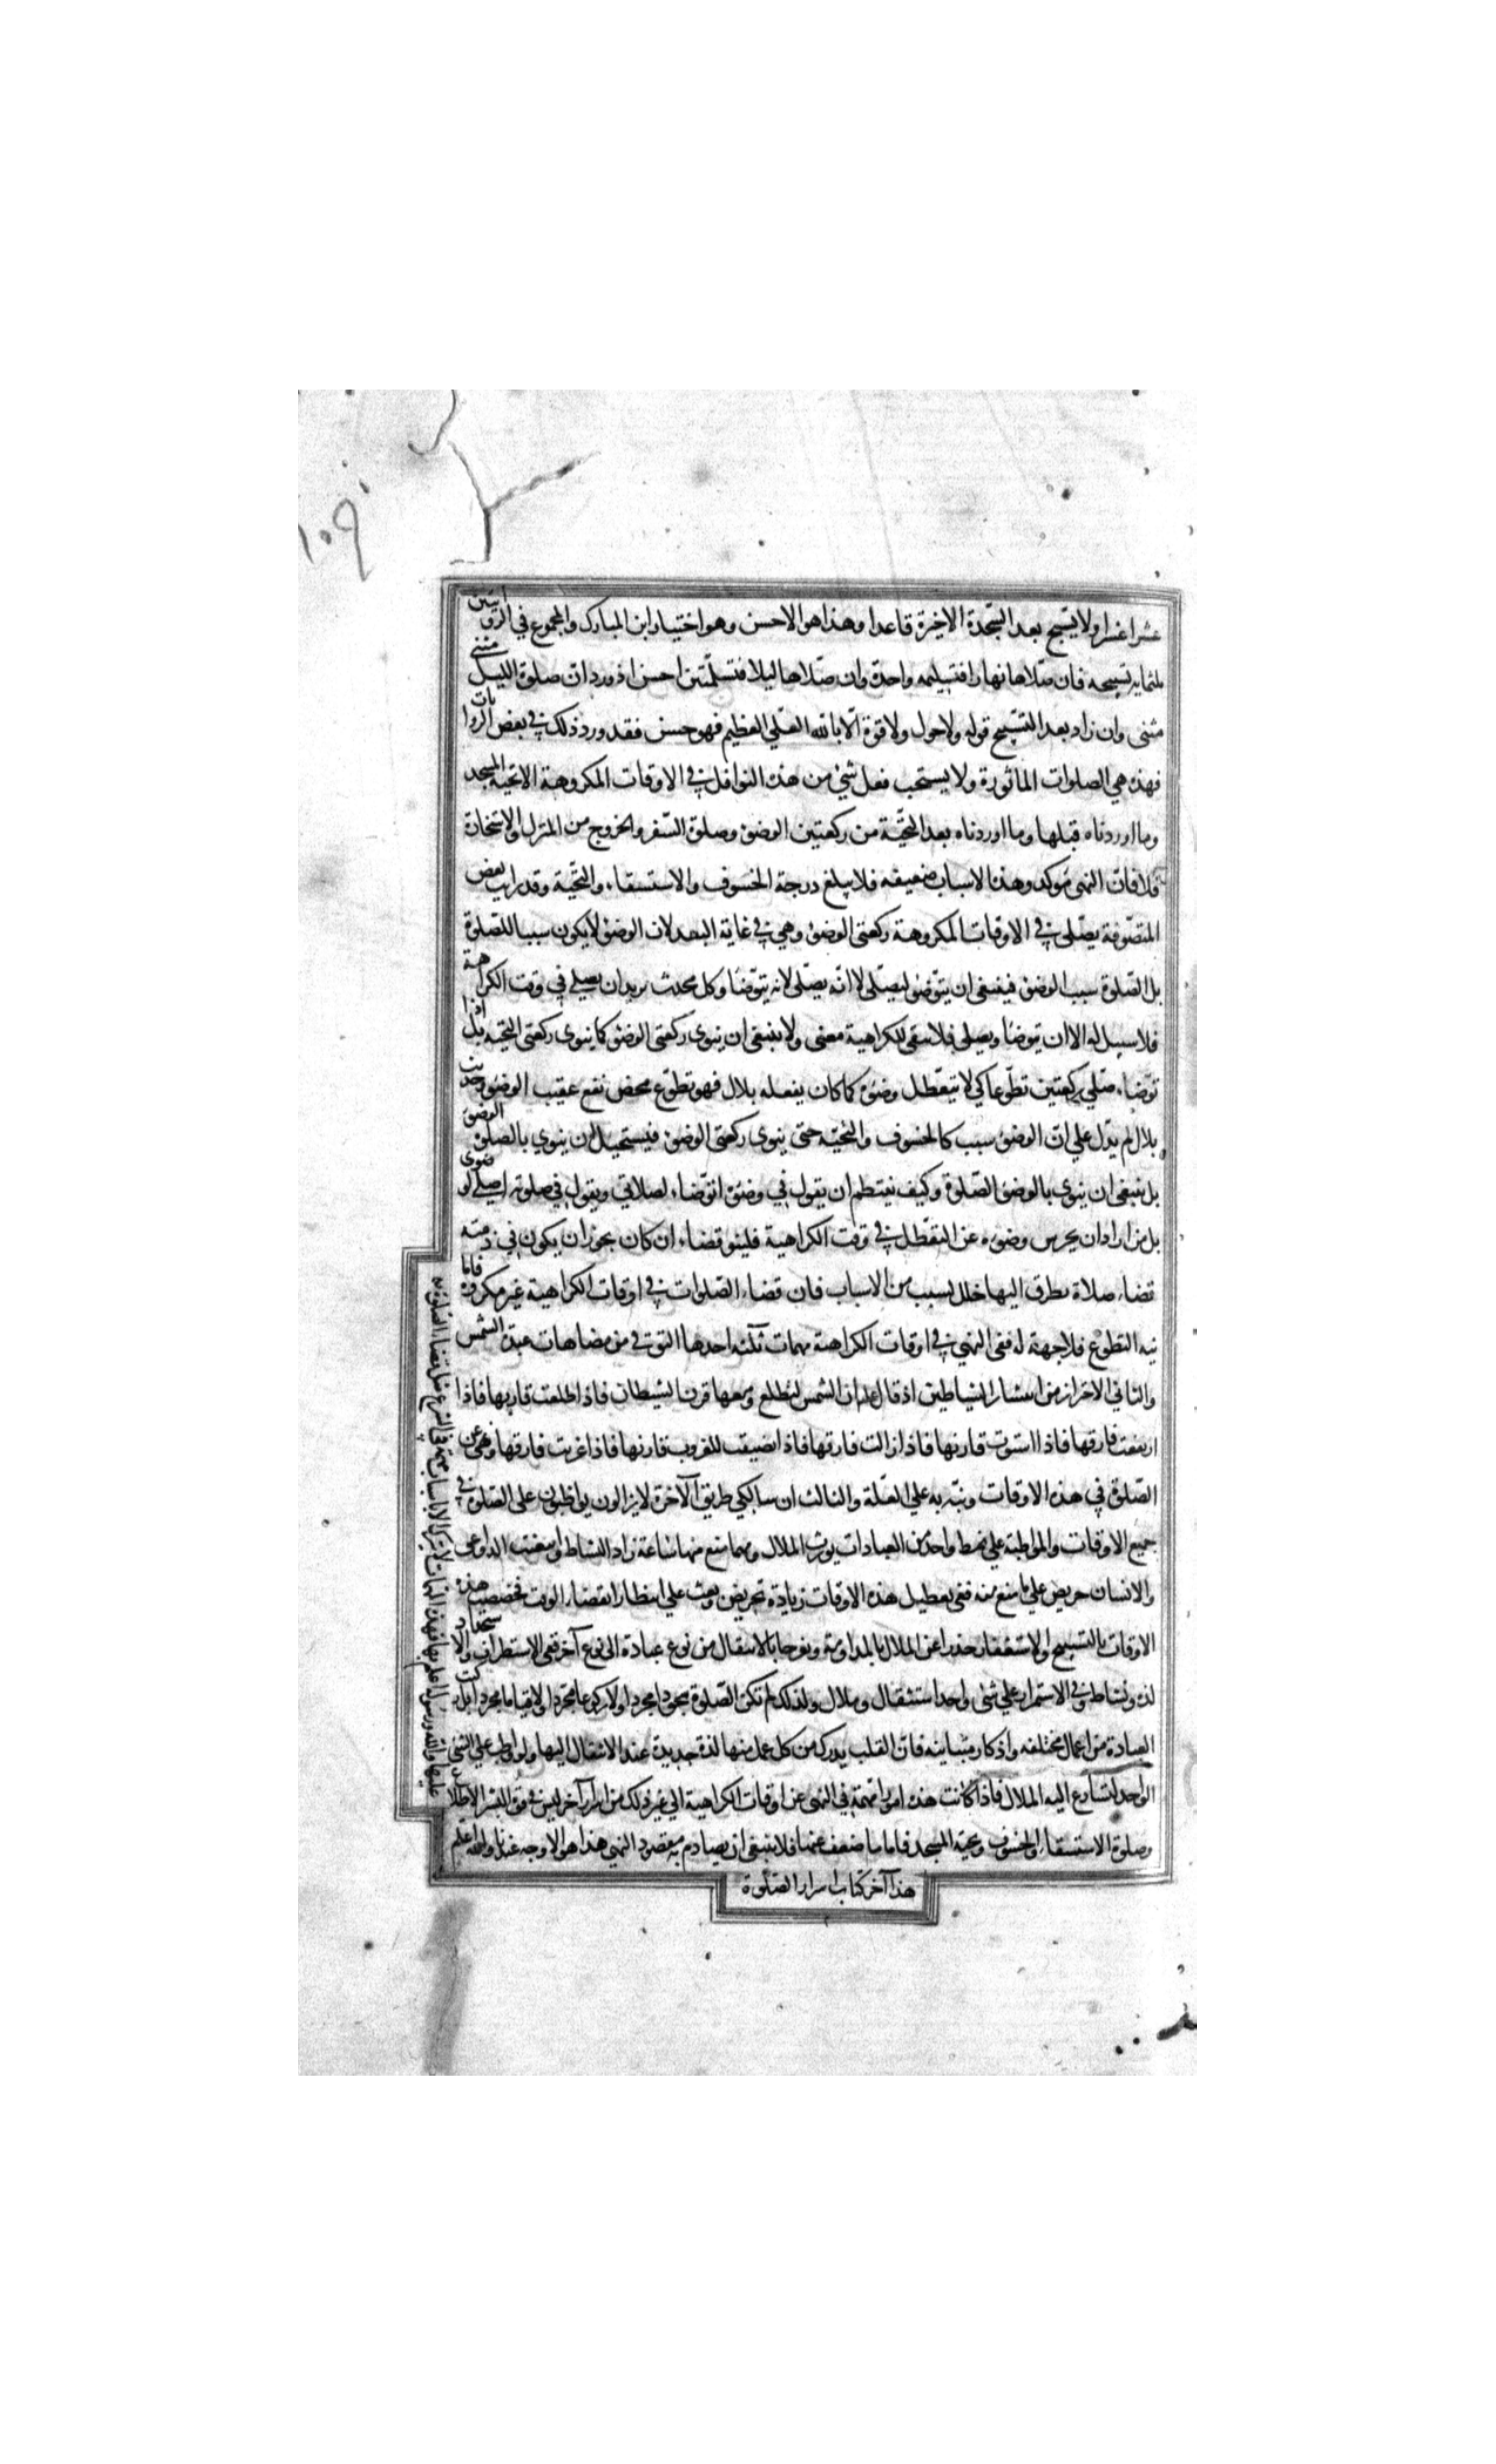 عشرا عشرا ولا يسبح بعد السجدة الاخيرة قاعدا وهذا هو الاحسن وهو اختيار ابن المبارك والمجموع في الروايتين
ثلثماية تسبيحه فان صلاها نهارا فبتسليمه واحدة وان صلاها ليلا فبتسليمتين احسن اذ ورد ان صلوة الليل مثنى
مثنى وان زاد بعد التسبيح قوله ولا حول ولا قوة الا بالله العلي العظيم فهو حسن فقد ورد ذلك في بعض الروايات
فهذه هي الصلوات الماثورة ولا يستحب فعل شيئ من هذه النوافل في الاوقات المكروهة الا تحية المسجد
وما اوردناه قبلها وما اوردناه بعد التحية من ركعتين الوضوء وصلوة السفر والخروج من المنزل والاستخارة
فلا فان النهى مؤكد وهذه الاسباب ضعيفه فلا يبلغ درجة الخسوف والاستسقاء والتحية وقد رايت بعض
المتصوفة يصلى في الاوقات المكروهة ركعتى الوضوء وهي في غاية البعد لان الوضوء لا يكون سببا للصلوة
بل الصلوة سبب الوضوء فينبغى ان يتوضؤ ليصلى لا انه يصلى لانه يتوضا وكل محدث يريد ان يصلي في وقت الكراهة
فلا سبيل له الا ان يتوضا ويصلى فلا يبقى للكراهية معنى ولا ينبغى ان ينوى ركعتى الوضوء كما ينوى ركعتى التحيه بل اذا
توضاء صلى ركعتين تطوعا كي لا يتعطل وضوءه كما كان يفعله بلال فهو تطوع محض يقع عقيب الوضوء وحديث
بلال لم يدل علي ان الوضوء سبب كالخسوف والتحيه حتى ينوى ركعتى الوضوء فيستحيل ان ينوي بالصلوة الوضوء
بل ينبغى ان ينوى بالوضوء الصلوة وكيف ينتظم ان يقول في وضوءه اتوضاء لصلاتي ويقول في صلوته اصلي لوضوى
بل من اراد ان يحرس وضوءه عن التعطل في وقت الكراهية فلينو قضاء ان كان يجوز ان يكون في ذمته
قضاء صلاة يطرق اليها خلل بسبب من الاسباب فان قضاء الصلوات في اوقات الكراهية غير مكروه فاما
نيه التطوع فلا وجهة له ففى النهي في اوقات الكراهية مهمات ثلثه احدها التوقى من مضاهات عبدة الشمس
والثاني الاحتراز من انتشار الشياطين اذ قال عليه ان الشمس لتطلع ومعها قرن الشيطان فاذا طلعت قارنها فاذا
ارتفعت فارقها فاذا استوت قارنها فاذا زالت فارقها فاذا تضيقت للغروب قارنها فاذا غربت فارقها ونهى عن
الصلوة في هذه الاوقات ونبه به علي العلة والثالث ان سالكي طريق الآخرة لا يزالون يواظبون على الصلوة في
جميع الاوقات والمواظبة علي نمط واحد من العبادات يورث الملال ومهما منع منها ساعة زاد النشاط وانبعثت الدواعي
والانسان حريص علي ما منع منه ففى تعطيل هذه الاوقات زيادة تحريض وبعث علي انتظار انقضاء الوقت فخصصت هذه
الاوقات بالتسبيح والاستغفار حذرا عن الملال بالمداومة وتفرجا بالانتقال من نوع عبادة الى نوع آخر ففى الاستطراف والاستجداد
لذة ونشاط وفي الاستمرار علي شئ واحد استثقال وملال ولذلك لم تكن الصلوة سجودا مجردا ولا ركوعا مجردا ولا قياما مجردا بل ركبت
العبادة من اعمال مختلفه واذكار متباينه فان القلب يدرك من كل عمل منها لذة جديدة عند الانتقال اليها ولو واظب علي الشئ
الواحد لتسارع اليه الملال فاذا كانت هذه امورا مهمة في النهى عن اوقات الكراهية الي غير ذلك من اسرار آخر ليس في قوة البشر الاطلاع
عليها والله ورسوله اعلم بها فهذه المهمات لا تترك الا باسباب مهمة في الشرع مثل قضا الصلوة
وصلوة الاستسقاء والخسوف وتحية المسجد فاما ما ضعف عنها فلا ينبغى ان يصادم به مقصود النهي هذا هو الاوجه عندنا والله اعلم
هذا آخر كتاب اسرار الصلوة